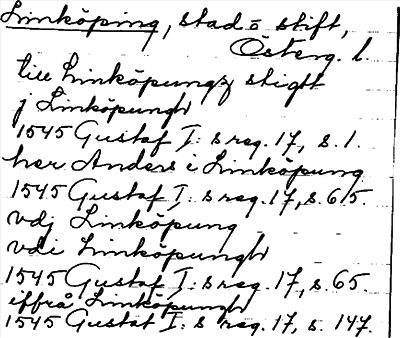 Linköping, stad o stift,
Österg. l.
till Linköpungz stigtt
j Linköpungh
1545 Gustaf I:s reg. 17, s. 1.
her Anders i Linköpung
1545 Gustaf I:s reg. 17, s. 615.
vdj Linköpung
vdi Linköpungh
1545 Gustaf I:s reg. 17, s. 65.
iffrå Linköpungh
1545 Gustaf I:s reg. 17, s. 147.